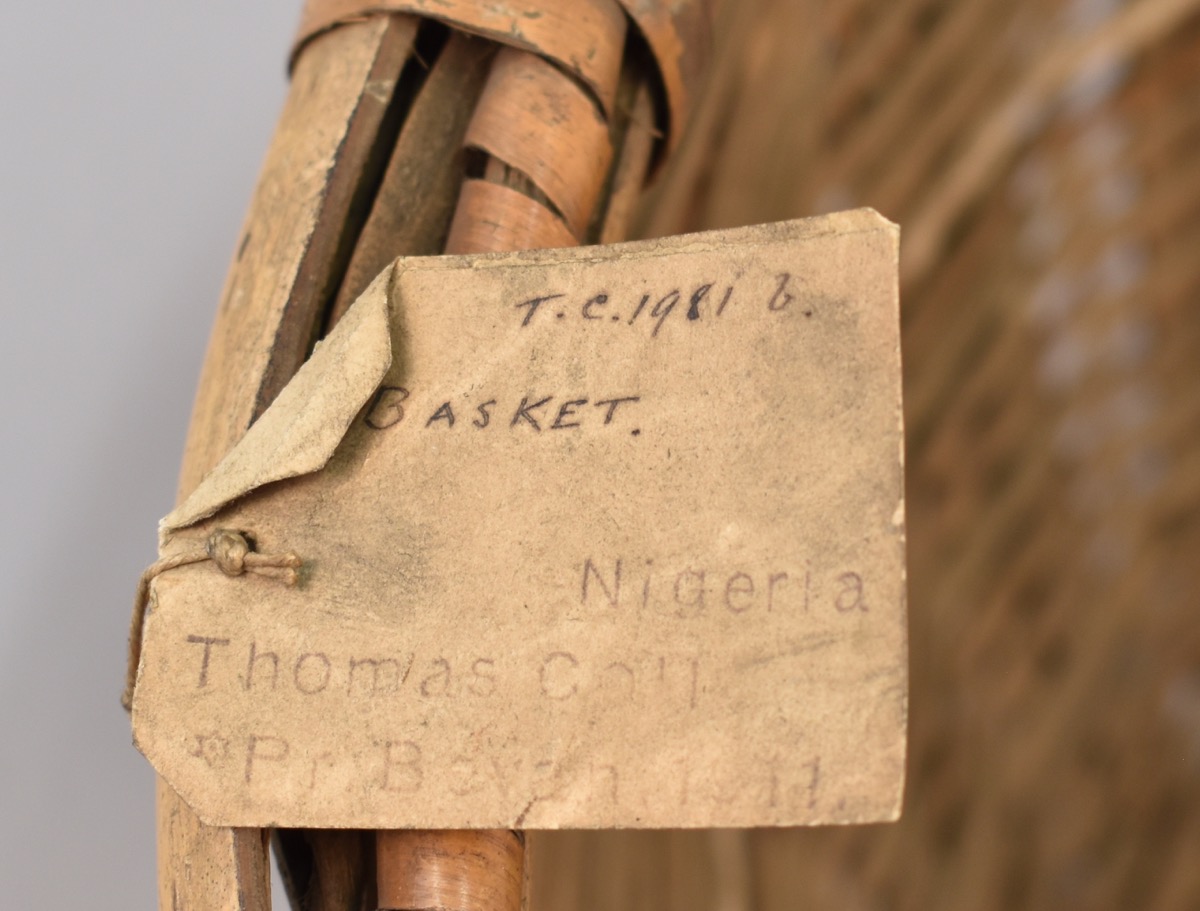 T.C.1981 b.
BASKET.
Nigeria
Thomas Coll
Pr Bevan 1911.